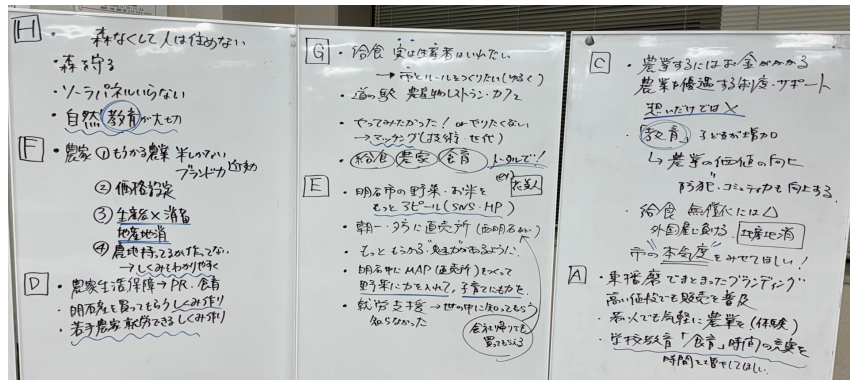 H
・森なくして人は住めない
・森を守る
・ソーラパネルいらない
・自然教育が大切
F
・農家 ① もうかる農業 米しかない
ブランド力
② 価格設定
③ 生産者×消費
地産地消
④ 農地持ってるが
→しくみをわかりやすく
D
・農家生活保障→PR・食育
・明石産を買ってもらうしくみ作り
・若手農家就労できるしくみ作り
G
・給食
→市とルールをつくりたい
・道の駅 農産物レストラン・カフェ
・やってみたかった! or やりたくない
→マッチング(技術・世代)
・給食 農家 食育 トータルで!
E
・明石市の野菜・お米を
もっとアピール(SNS・HP)
・朝一・夕方に直売所(西明石
・もっともうかる
があるように
・明石市にMAP(直売所)をつくって
野菜に力を入れて、子育てにも力を
・就労支援→世の中に知ってもらう
知らなかった
会社帰りでも
買ってもらえる
C
・農業するにはお金がかかる
農業を優遇する制度・サポート
想いだけでは×
・「教育」子どもが増加
↳農業の価値の向上
防犯・コミュニティ力も向上する
・給食 無償化には△
外国産に負ける 地産地消
市の"本気度"をみせてほしい!
A
・東播磨でまとまったブランディング
高い値段でも販売を普及
・素人でも気軽に農業を(体験)
・学校教育「食育」時間の充実を
時間を増やしてほしい。